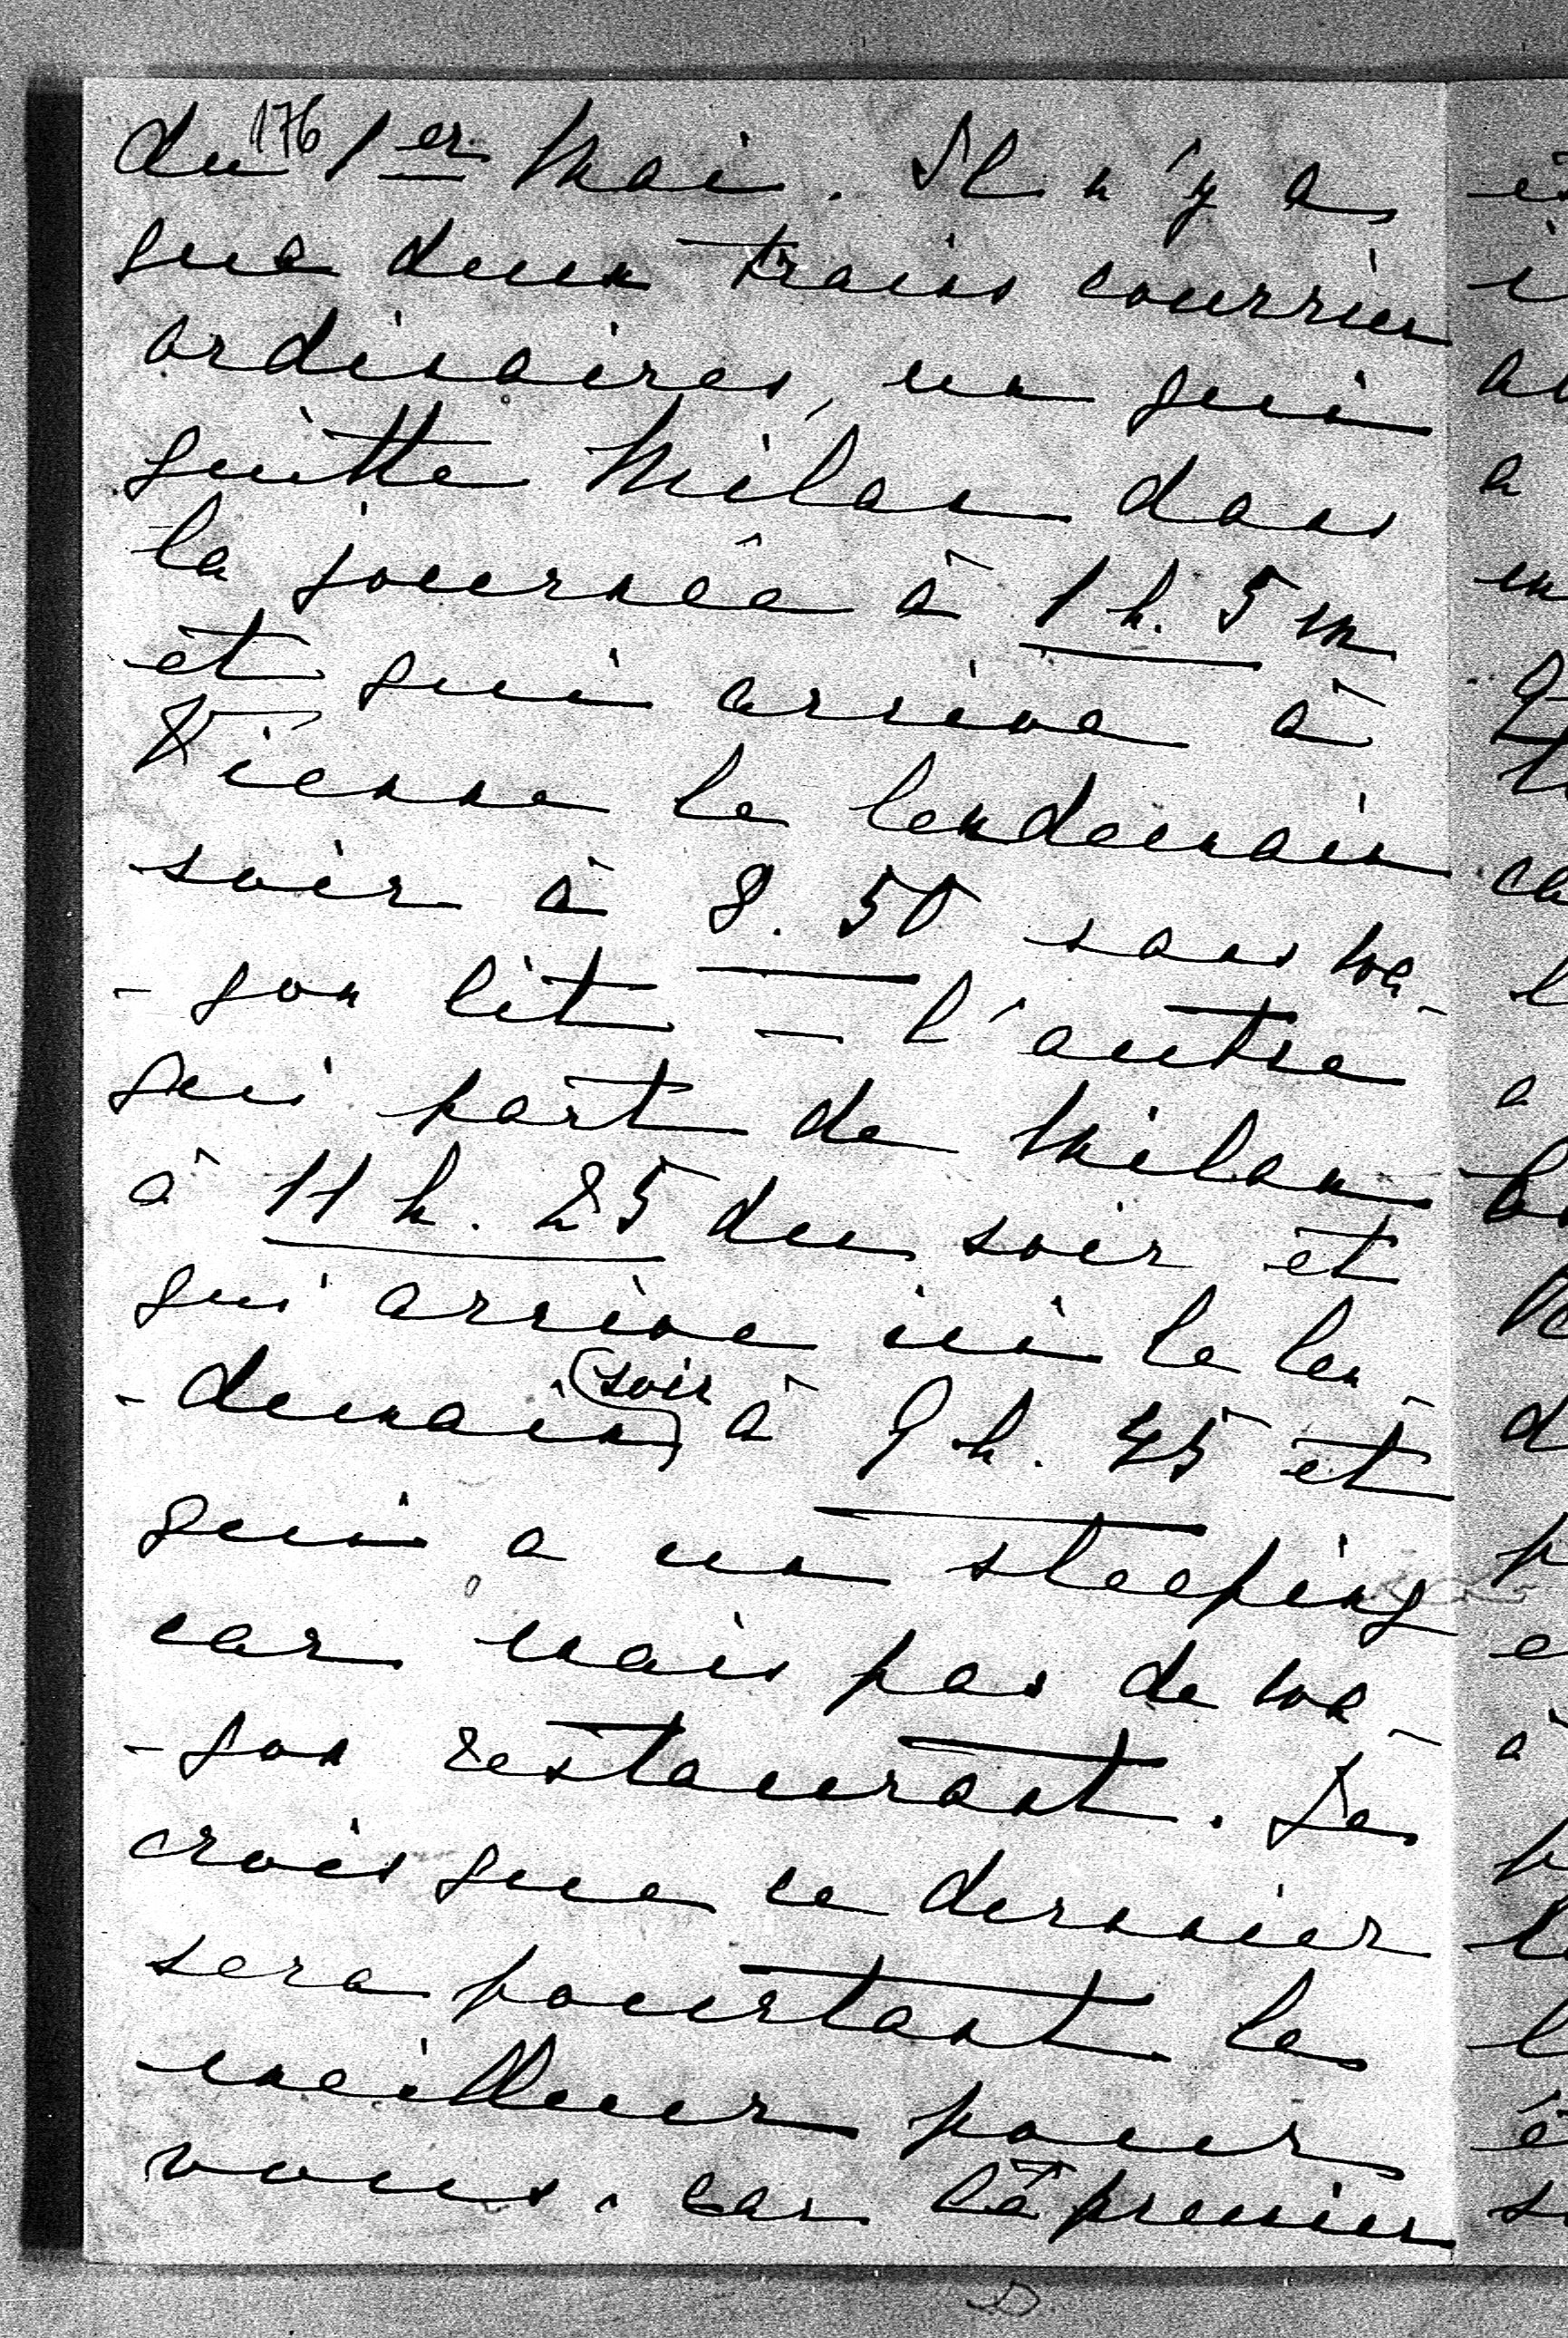 176
du 1er Mai. Il n'y a
que deux trains courrier
ordinaires, un qui
quitte Milan dans
la journée à 1 h. 5 m
et qui arrive à
Vienne le lendemain
soir à 8. 50 sans wa-
-gon lit — l'autre
qui part de Milan
à 11 h. 25 du soir et
qui arrive ici le len-
-demain (soir) à 9 h. 45 et
qui a un sleeping
car mais pas de wa-
-gon restaurant. Je
crois que ce dernier
sera pourtant le
meilleur pour
vous. car le premier